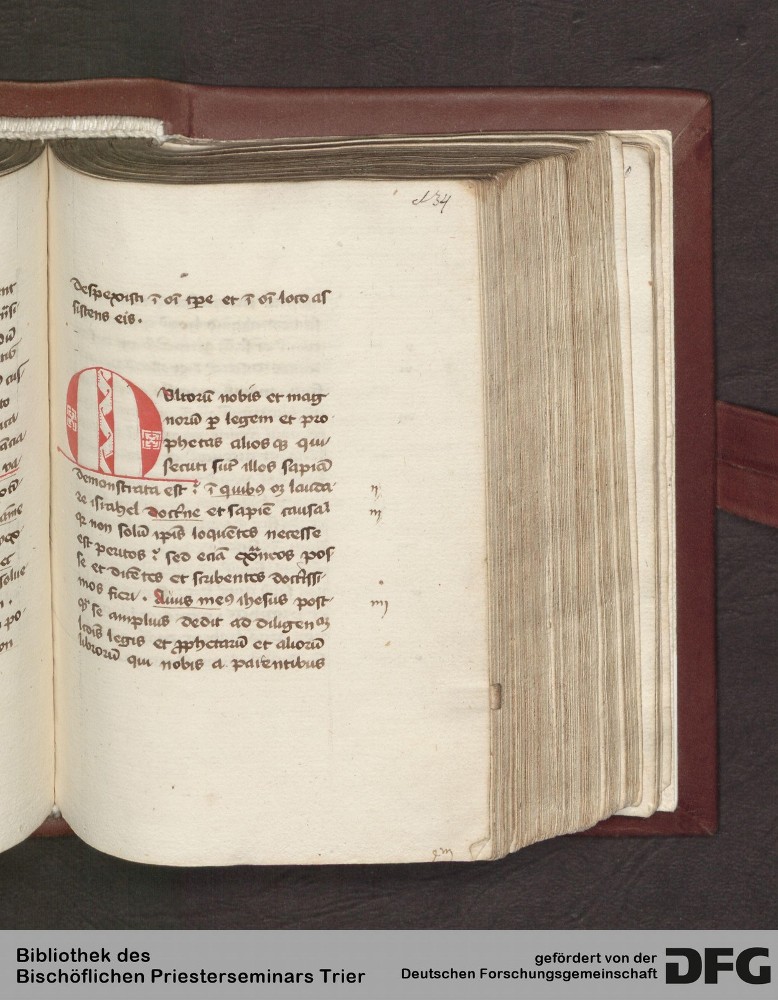 134
despexisti ī oī tp̄e et ī oī loco as
sistens eis.
Multorū nobis et mag
norū p̱ legem et pro
phetas alios qꝫ qui
secuti sūt illos sapiā
demonstrata est : ī quibꝰ oꝫ lauda
n
re israhel doct̄ne et sapiē causa
m
qꝛ non solū ip̄is loquētes necesse
est peritos : sed eciā ext̄neos pos
se et dicētes et scribentes doct̄issi
mos fieri . Auus meꝰ ihesus post
qͣ se amplius dedit ad diligenꝫ
lcōis legis et ꝓphetarū et aliorū
librorū qui nobis a parentibus
Bibliothek des
Bischöflichen Priesterseminars Trier
gefördert von der
Deutschen Forschungsgemeinschaft
DFG